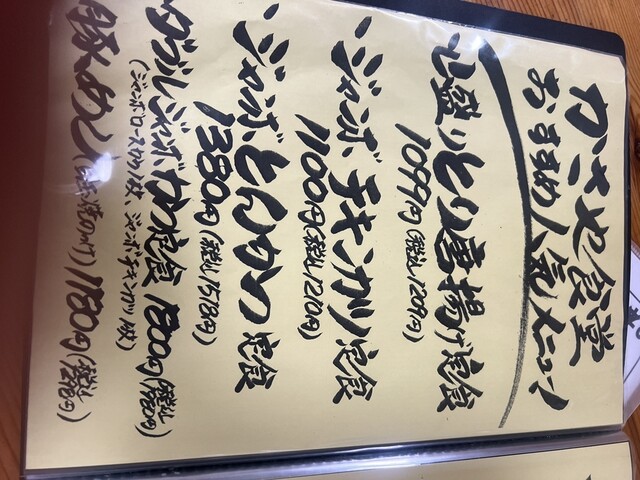 かさや食堂
おすすめ人気メニュー!
山盛りとり唐揚げ定食
1099円(税込1209円)
ジャンボチキンカツ定食
1100円(税込1210円)
ジャンボとんかつ定食
1380円(税込1518円)
ダブルジャンボかつ定食 1800円(税込1980円)
(ジャンボロースカツ1枚、ジャンボチキンカツ1枚)
豚めし 1180円(税込1298円)